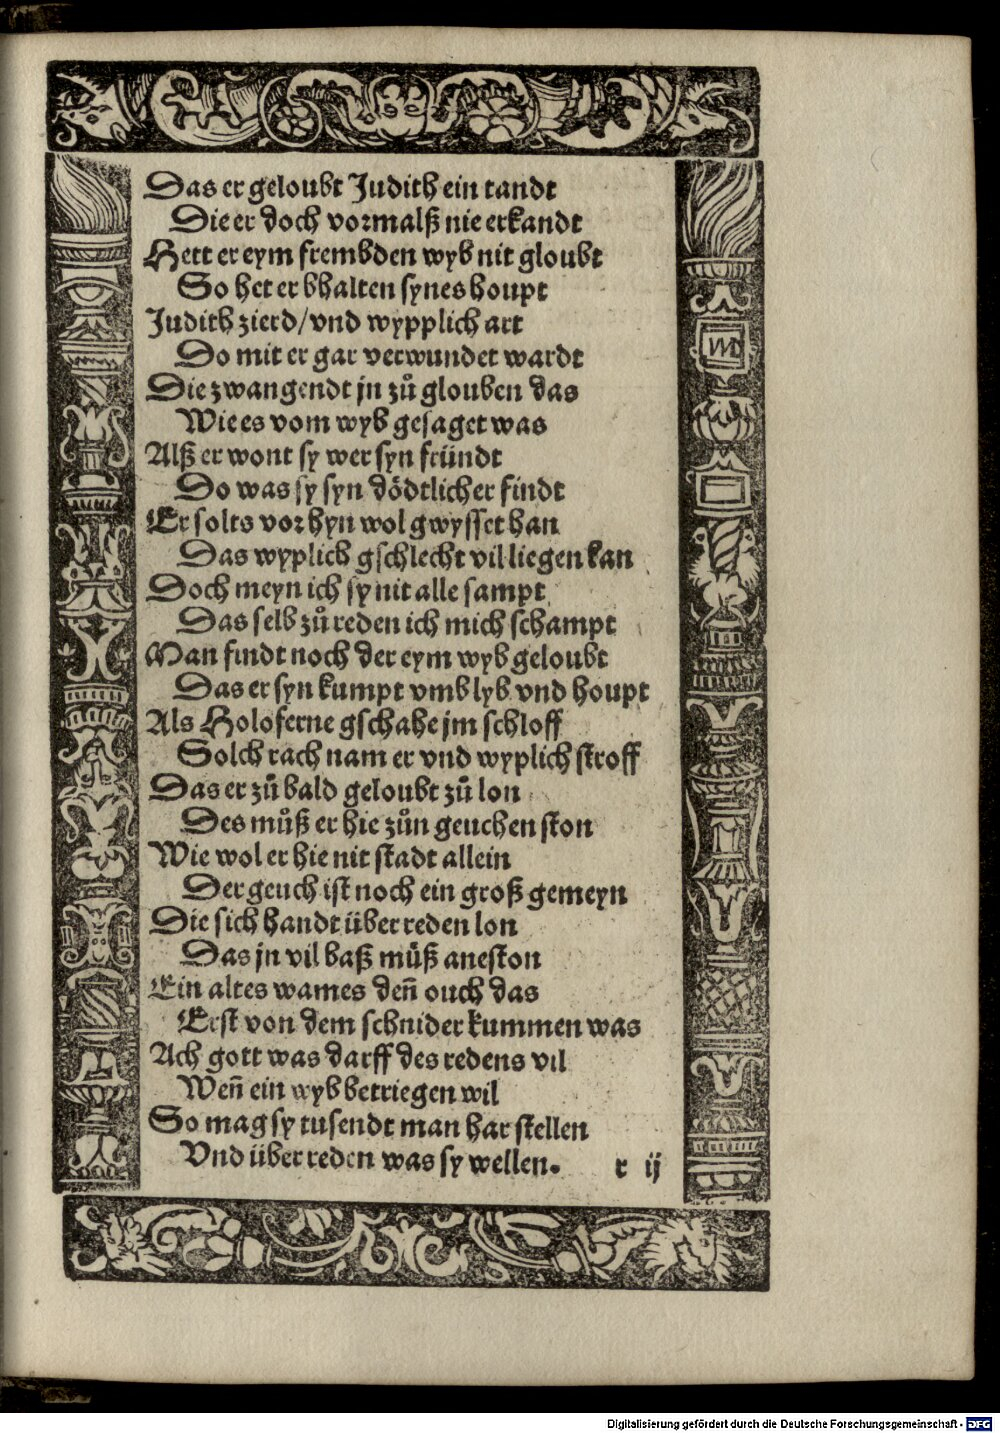 Das er geloubt Judith ein tandt
Die er doch vormalß nie erkandt
Hett er eym frembden wyb nit gloubt
So het er bhalten synes houpt
Judith zierd/vnd wypplich art
Do mit er gar verwundet wardt
Die zwangendt jn zů glouben das
Wie es vom wyb gesaget was
Alß er wont sy wer syn fründt
Do was sy syn dödtlicher findt
Er solts vor hyn wol gwysset han
Das wyplich gschlecht vil liegen kan
Doch meyn ich sy nit alle sampt
Das selb zů reden ich mich schampt
Man findt noch der eym wyb geloubt
Das er syn kumpt vmb lyb vnd houpt
Als Holoferne gschahe jm schloff
Solch rach nam er vnd wyplich stroff
Das er zů bald geloubt zů lon
Des můß er hie zůn geuchen ston
Wie wol er hie nit stadt allein
Der geuch ist noch ein groß gemeyn
Die sich handt über reden lon
Das jn vil baß můß aneston
Ein altes wames den̄ ouch das
Erst von dem schnider kummen was
Ach gott was darff des redens vil
Wen̄ ein wyb betriegen wil
So mag sy tusendt man har stellen
Vnd über reden was sy wellen.
r ij
Digitalisierung gefördert durch die Deutsche Forschungsgemeinschaft - DFG